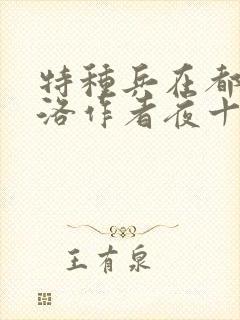 特種兵在都
洛作者夜十
王有泉